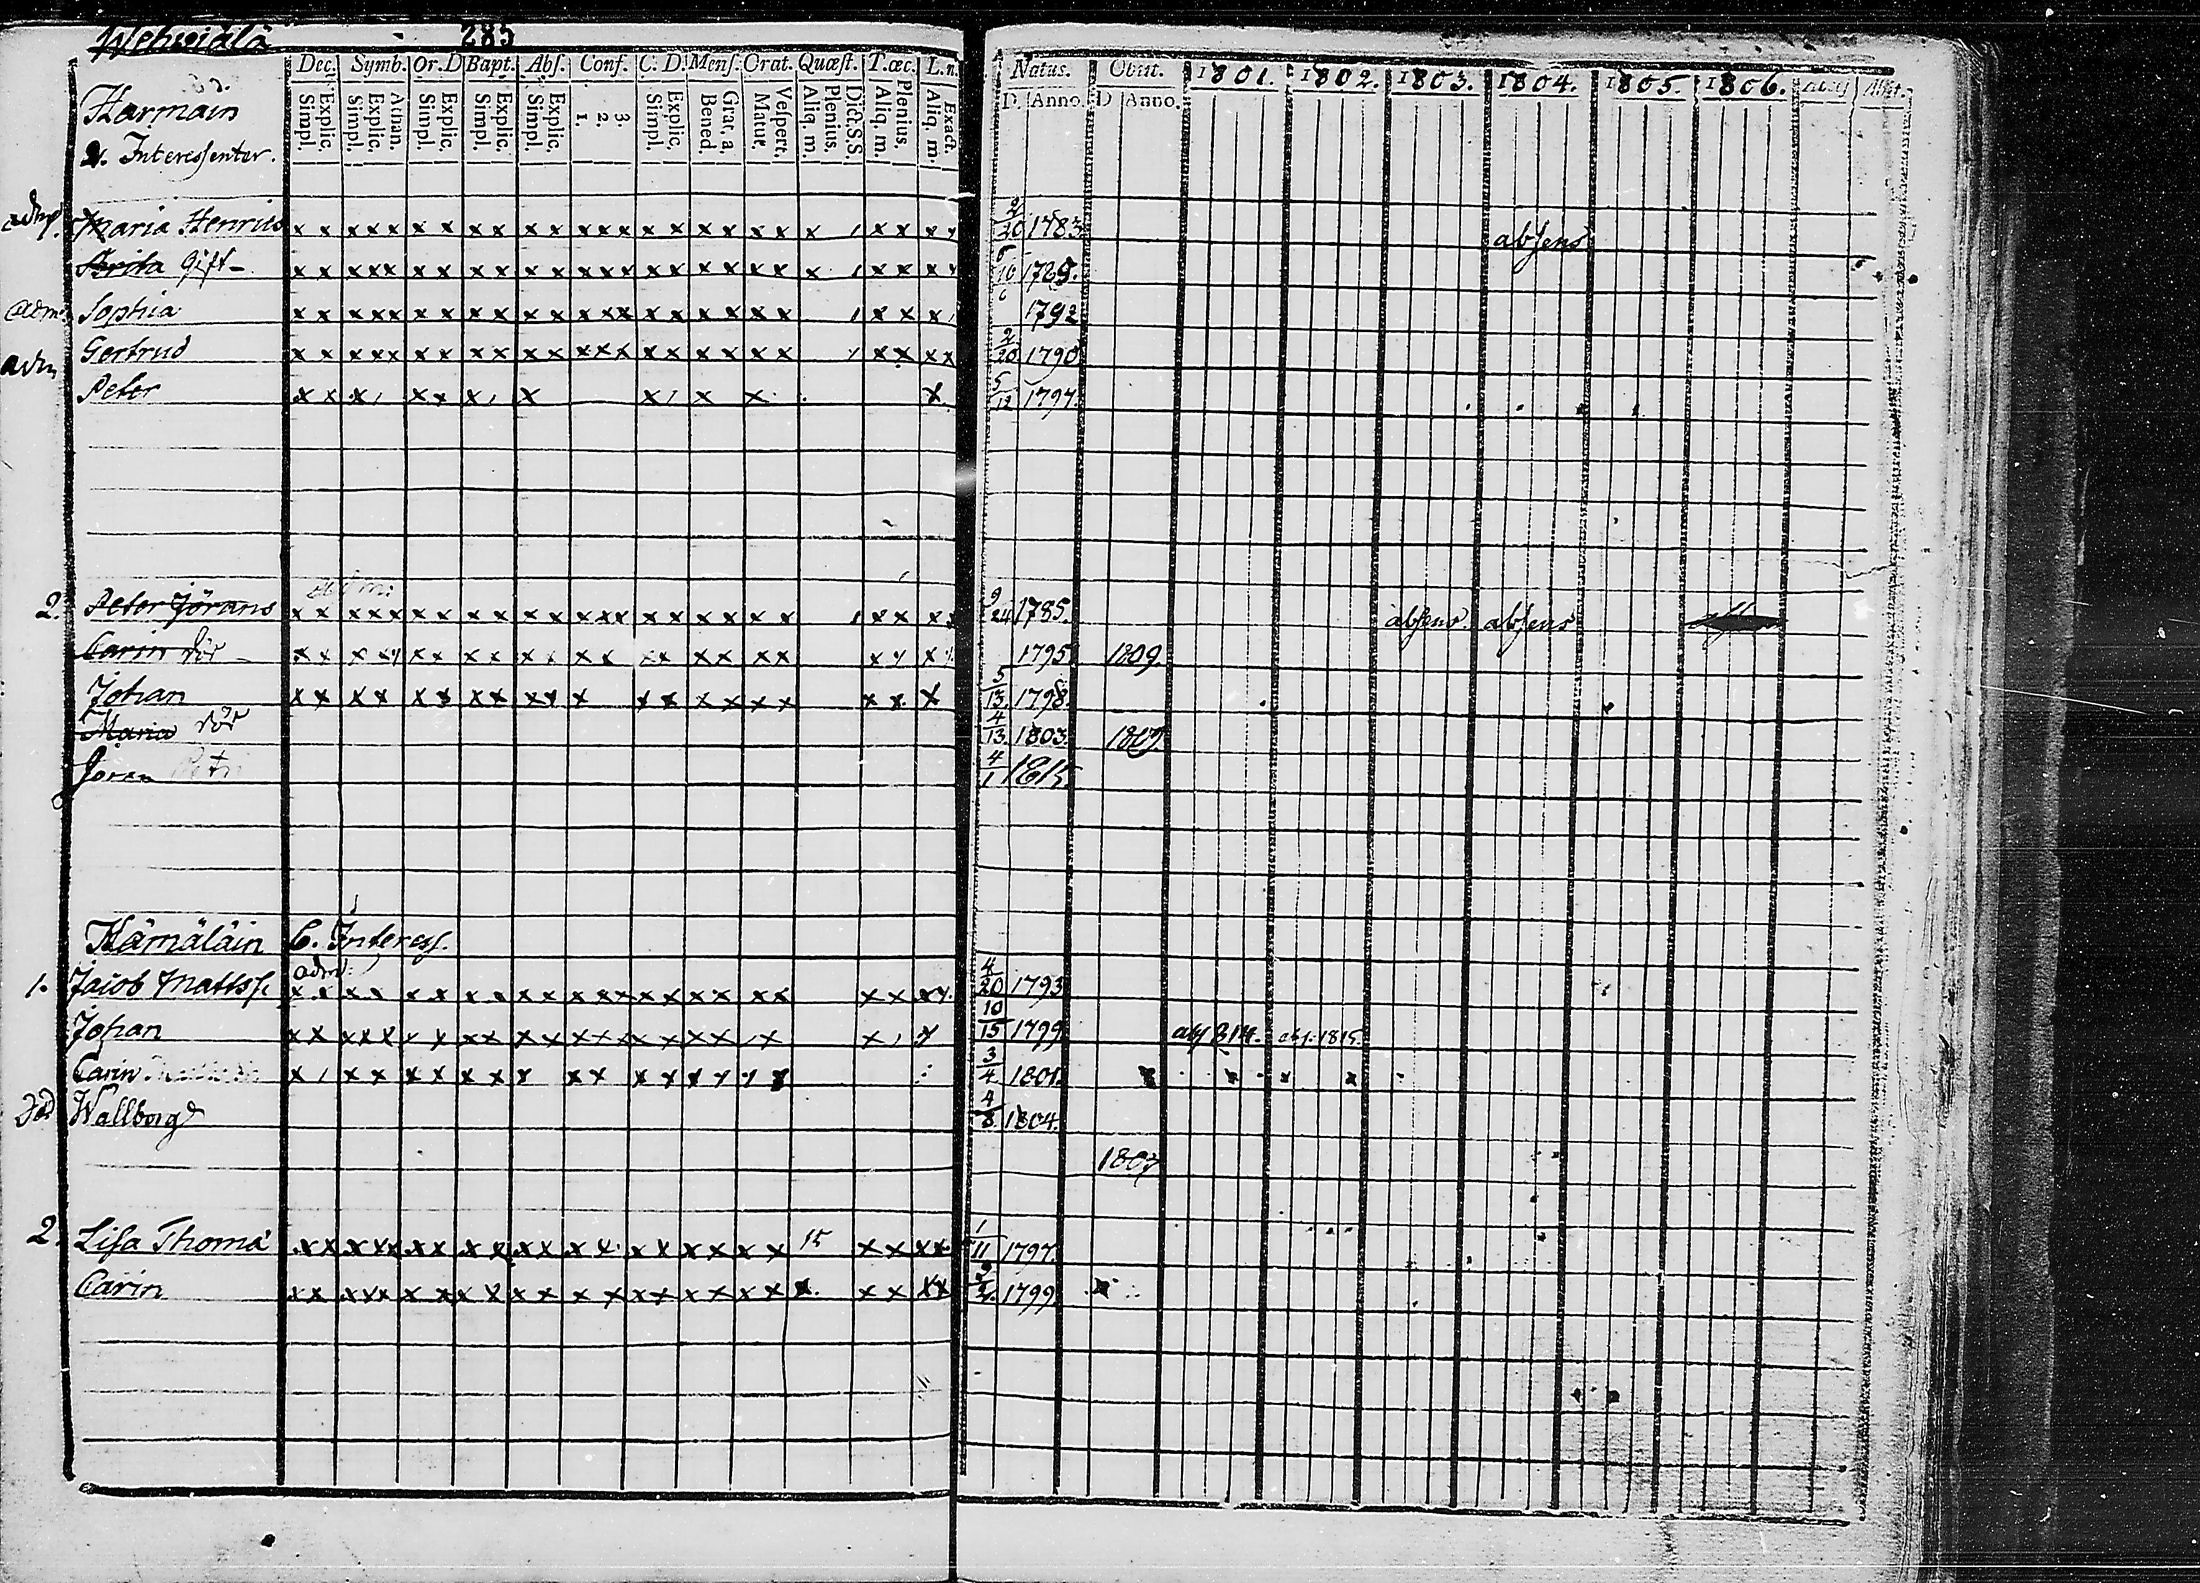 Wehwiälä 285
Dec. Symb. Or. D Bapt. Abſ. Conf. C. D. Menſ. Orat. Quæſt. T. œc. L. n.
Simpl. Explic. Simpl. Explic. Athan. Simpl. Explic. Simpl. Explic. Simpl. Explic. 1. 2. 3. Simpl. Explic. Bened. Grat. a. Matut. Veſpert. Aliq. m. Plenius. Dict. S. S. Aliq. m. Plenius. Aliq. m. Exact.
Natus. Obiit. 1801. 1802. 1803. 1804. 1805. 1806.
D. Anno. D Anno.
Harmain
2. Intereſſenter.
Maria Henrics x x x x x x x x x x x x x x x x x x x x x x x x x 2/20 1783 abſens
Brita Gift x x x x x x x x x x x x x x x x x x x x x x x x 1789.
adm. Sophia x x x x x x x x x x x x x x x x x x x x x x x 1792
adm Gertrud x x x x x x x x x x x x x x x x x x x x x x x x 2/20 1790
Peter x x x x x x x x x x x 5/12 1797.
adm:
2. Peter Jörans x x x x x x x x x x x x x x x x x x x x x x x x 9/24 1785. abſens. abſens
Carin död x x x x x x x x x x x x x x x x x x x x x 1795 1809.
Johan x x x x x x x x x x x x x x x x x x x x 5/13. 1798.
Maria död 4/13. 1803. 1809
Jören 4/1 1815.
Hämäläin C. Intereſſ.
adm:
1. Jacob Mattsſ. x x x x x x x x x x x x x x x x x x x x x x x 4/20 1793
Johan x x x x x x x x x x x x x x x x x x x x x 10/15 1799 abſ. 1815.
Carin x x x x x x x x x x x x x x x x x x 3/4. 1801.
död Wallborg 4/8. 1804.
1807
2. Liſa Thomæ x x x x x x x x x x x x x x x x x x x 15 x x x x 1/11 1797.
Carin x x x x x x x x x x x x x x x x x x x x x x x x 1799.